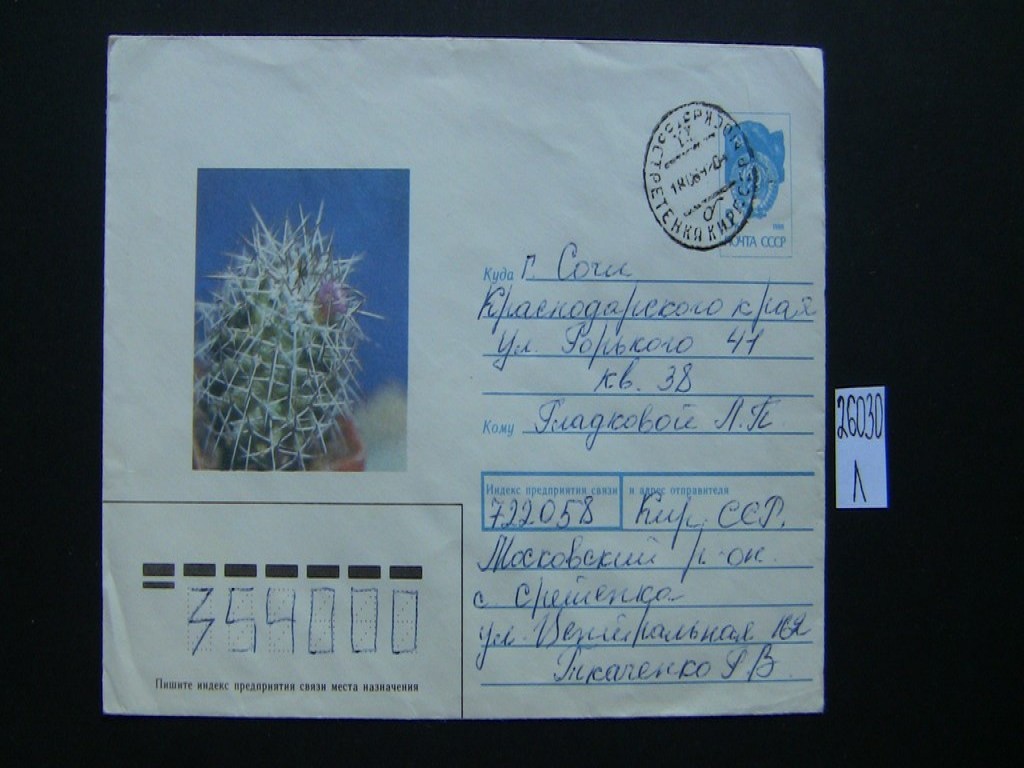 ПОЧТА СССР
СРЕТЕНКА КИРГ.ССР
Куда г. Сочи
Краснодарского края
ул. Горького 41
кв. 38
Кому Гладковой Л.П.
Индекс предприятия связи и адрес отправителя
722058 Кир. ССР.
Московский р-он.
с. Сретенка
ул. Центральная 162
Ткаченко Р В
354000
Пишите индекс предприятия связи места назначения
26030
Л